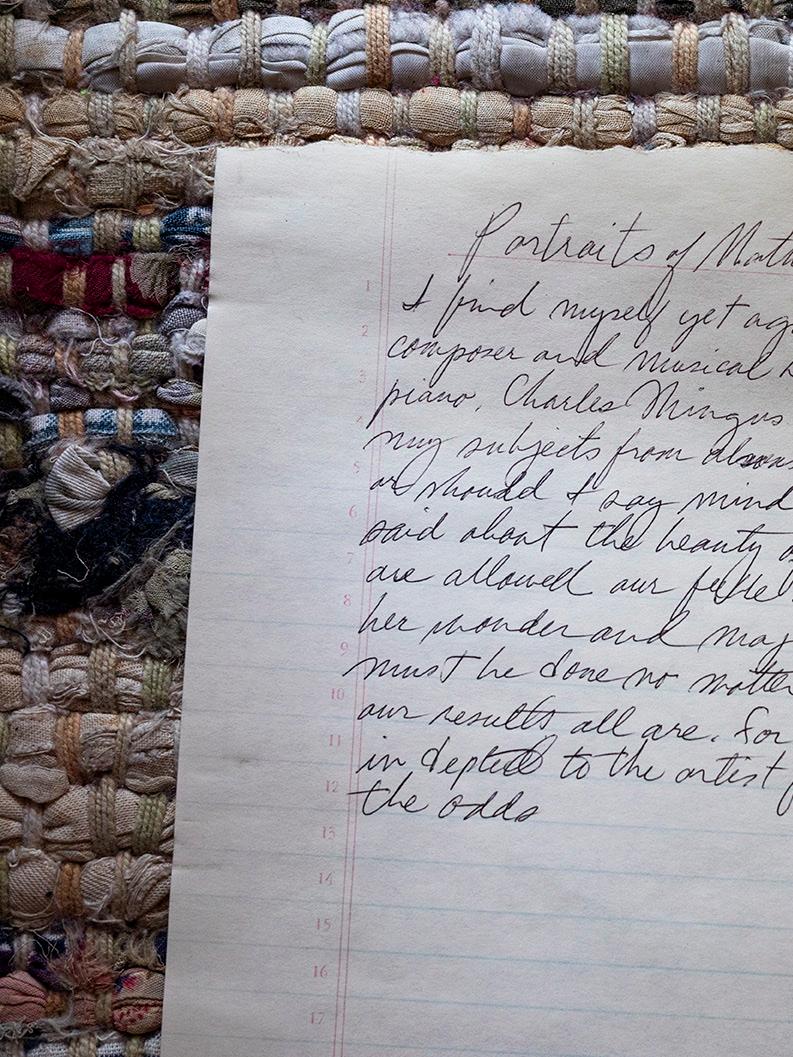 Portraits of
I find myself yet ag
composer and musical
piano. Charles Mingus
my subjects from
or should I say mind
said about the beauty o
are allowed our
her wonder and maj
must be done no matter
our results all are. For
in to the artist
the odds
1
2
3
4
5
6
7
8
9
10
11
12
13
14
15
16
17